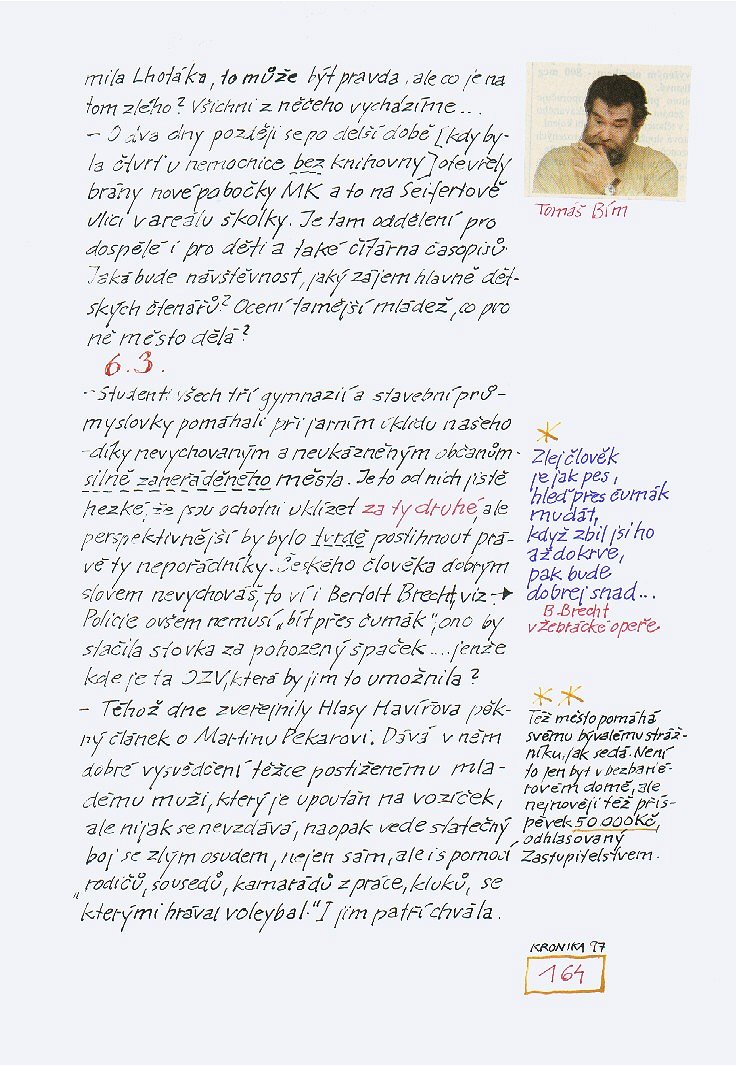 mila Lhotáka, to může být pravda, ale co je na
tom zlého? Všichni z něčeho vycházíme...
– O dva dny později se po delší době [kdy by-
la čtvrť u nemocnice bez knihovny] otevřely
brány nové pobočky MK a to na Seifertově
ulici v areálu školky. Je tam oddělení pro
dospělé i pro děti a také čítárna časopisů.
Jaká bude návštěvnost, jaký zájem hlavně dět-
ských čtenářů? Ocení tamější mládež, co pro
ně město dělá?
6.3.
– Studenti všech tří gymnazií a stavební prů-
myslovky pomáhali při jarním úklidu našeho
–díky nevychovaným a neukázněným občanům–
silně zaneřáděného města. Je to od nich jistě
hezké, že jsou ochotni uklízet za ty druhé, ale
perspektivnější by bylo tvrdě postihnout prá-
vě ty nepořádníky. Českého člověka dobrým
slovem nevychováš, to ví i Bertolt Brecht, viz →
Policie ovšem nemusí „bít přes čumák", ono by
stačila stovka za pohozený špaček....jenže
kde je ta OZV, která by jim to umožnila?
– Téhož dne zveřejnily Hlasy Havířova pěk-
ný článek o Martinu Pekařovi. Dává v něm
dobré vysvědčení těžce postiženému mla-
dému muži, který je upoután na vozíček,
ale nijak se nevzdává, naopak vede statečný
boj se zlým osudem, nejen sám, ale i s pomocí
„rodičů, sousedů, kamarádů z práce, kluků, se
kterými hrával volejbal." I jim patří chvála.
Tomáš Bím
*
Zlej člověk
je jak pes,
hleď přes čumák
mu dát,
když zbil jsi ho
až do krve,
pak bude
dobrej snad...
B. Brecht
v Žebrácké opeře
**
Též město pomáhá
svému bývalému stráž-
níku, jak se dá. Není
to jen byt v bezbarié-
rovém domě, ale
nejnověji též přís-
pěvek 50 000 Kč,
odhlasovaný
Zastupitelstvem.
KRONIKA 97
164